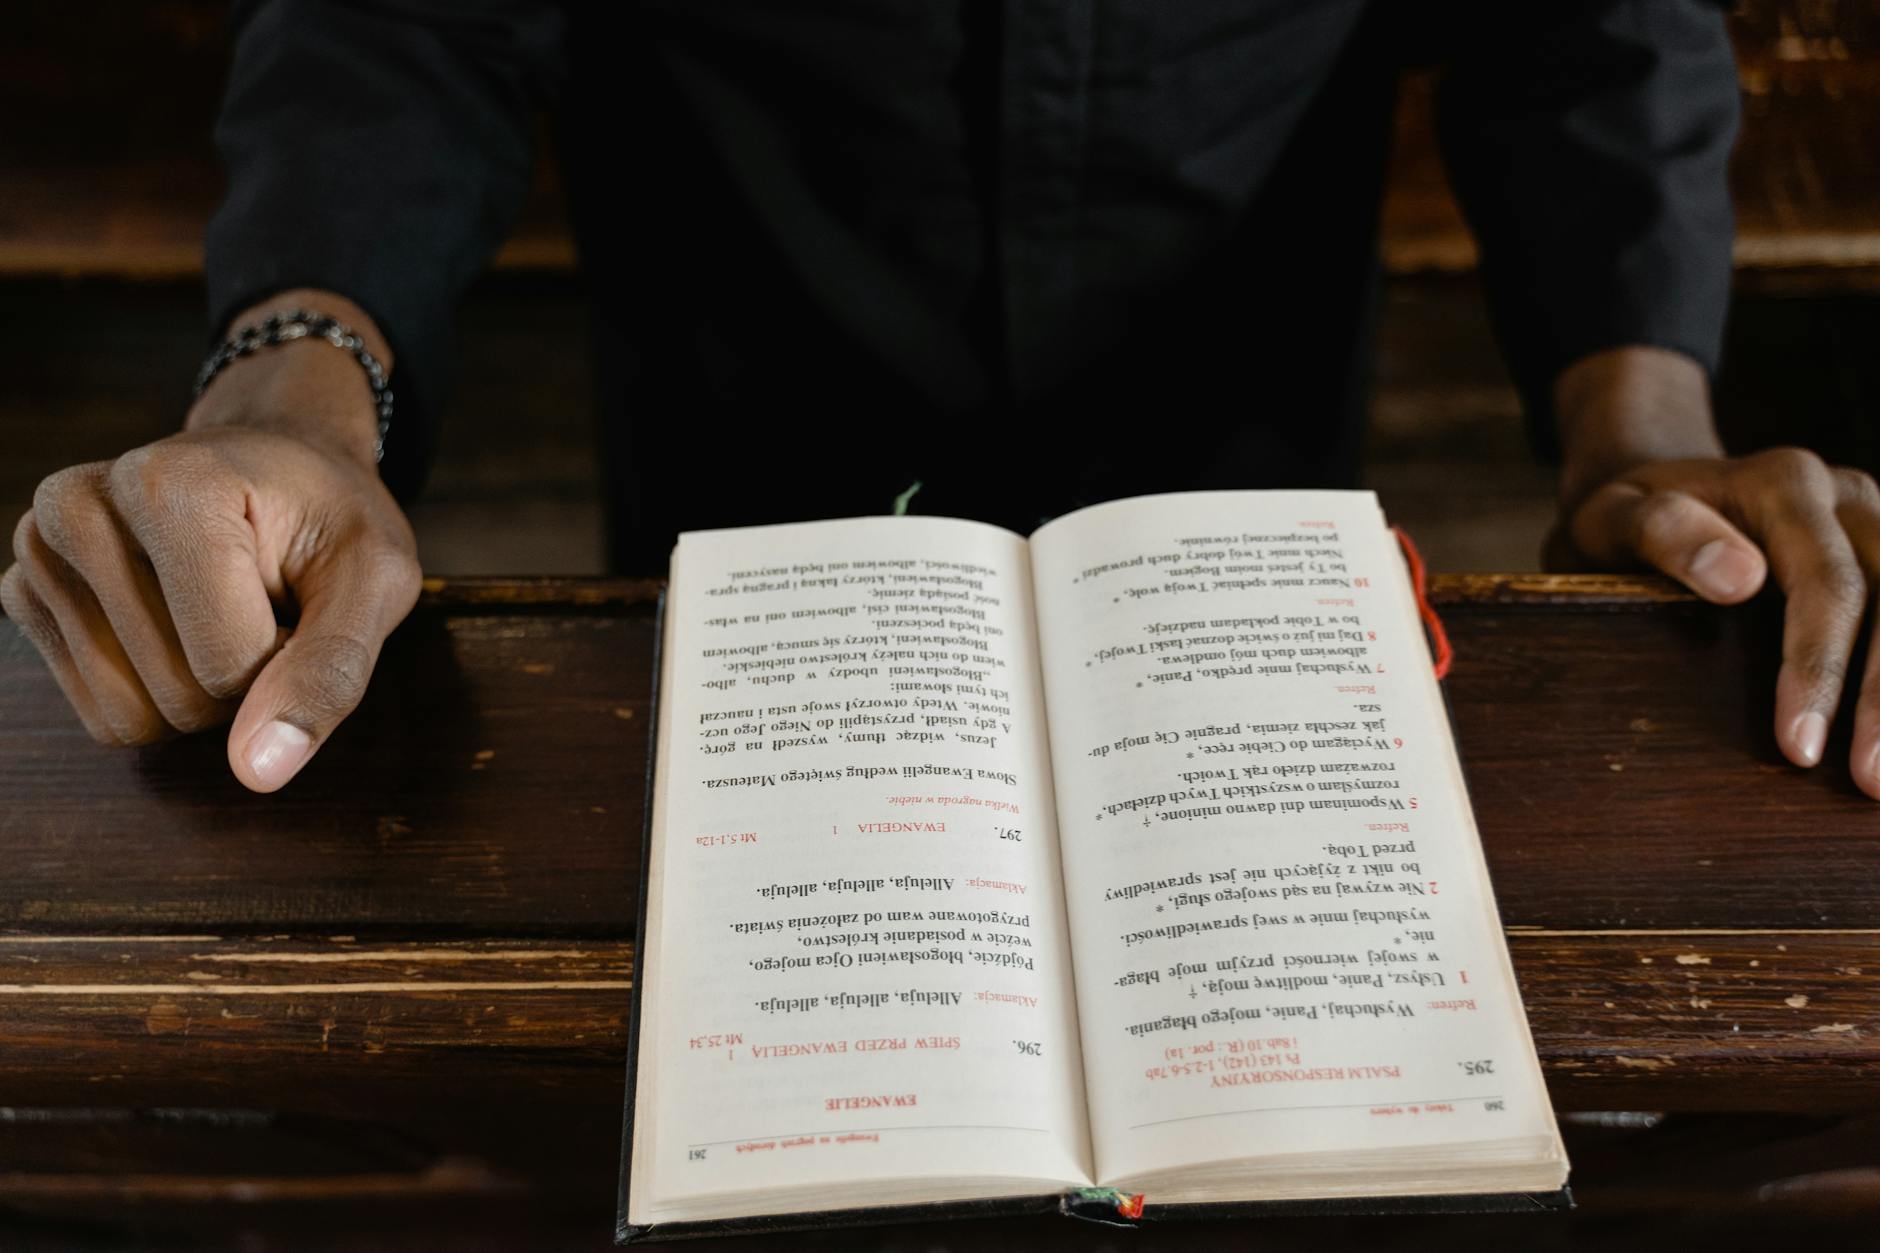 260 Teksty do wyboru
295. PSALM RESPONSORYJNY
Ps 143 (142), 1-2.5-6.7ab
i 8ab.10 (R.: por. 1a)
Refren: Wysłuchaj, Panie, mojego błagania.
1 Usłysz, Panie, modlitwę moją, †
w swojej wierności przyjm moje błaga-
nie, *
wysłuchaj mnie w swej sprawiedliwości.
2 Nie wzywaj na sąd swojego sługi, *
bo nikt z żyjących nie jest sprawiedliwy
przed Tobą.
Refren.
5 Wspominam dni dawno minione, †
rozmyślam o wszystkich Twych dziełach, *
rozważam dzieło rąk Twoich.
6 Wyciągam do Ciebie ręce, *
jak zeschła ziemia, pragnie Cię moja du-
sza.
Refren.
7 Wysłuchaj mnie prędko, Panie, *
albowiem duch mój omdlewa.
8 Daj mi już o świcie doznać łaski Twojej, *
bo w Tobie pokładam nadzieję.
Refren.
10 Naucz mnie spełniać Twoją wolę, *
bo Ty jesteś moim Bogiem.
Niech mnie Twój dobry duch prowadzi *
po bezpiecznej równinie.
Refren.
Ewangelie na pogrzeb dorosłych 261
EWANGELIE
296. ŚPIEW PRZED EWANGELIĄ 1 Mt 25,34
Aklamacja: Alleluja, alleluja, alleluja.
Pójdźcie, błogosławieni Ojca mojego,
weźcie w posiadanie królestwo,
przygotowane wam od założenia świata.
Aklamacja: Alleluja, alleluja, alleluja.
297. EWANGELIA 1 Mt 5,1-12a
Wielka nagroda w niebie.
Słowa Ewangelii według świętego Mateusza.
Jezus, widząc tłumy, wyszedł na górę.
A gdy usiadł, przystąpili do Niego Jego ucz-
niowie. Wtedy otworzył swoje usta i nauczał
ich tymi słowami:
„Błogosławieni ubodzy w duchu, albo-
wiem do nich należy królestwo niebieskie.
Błogosławieni, którzy się smucą, albowiem
oni będą pocieszeni.
Błogosławieni cisi, albowiem oni na włas-
ność posiądą ziemię.
Błogosławieni, którzy łakną i pragną spra-
wiedliwości, albowiem oni będą nasyceni.